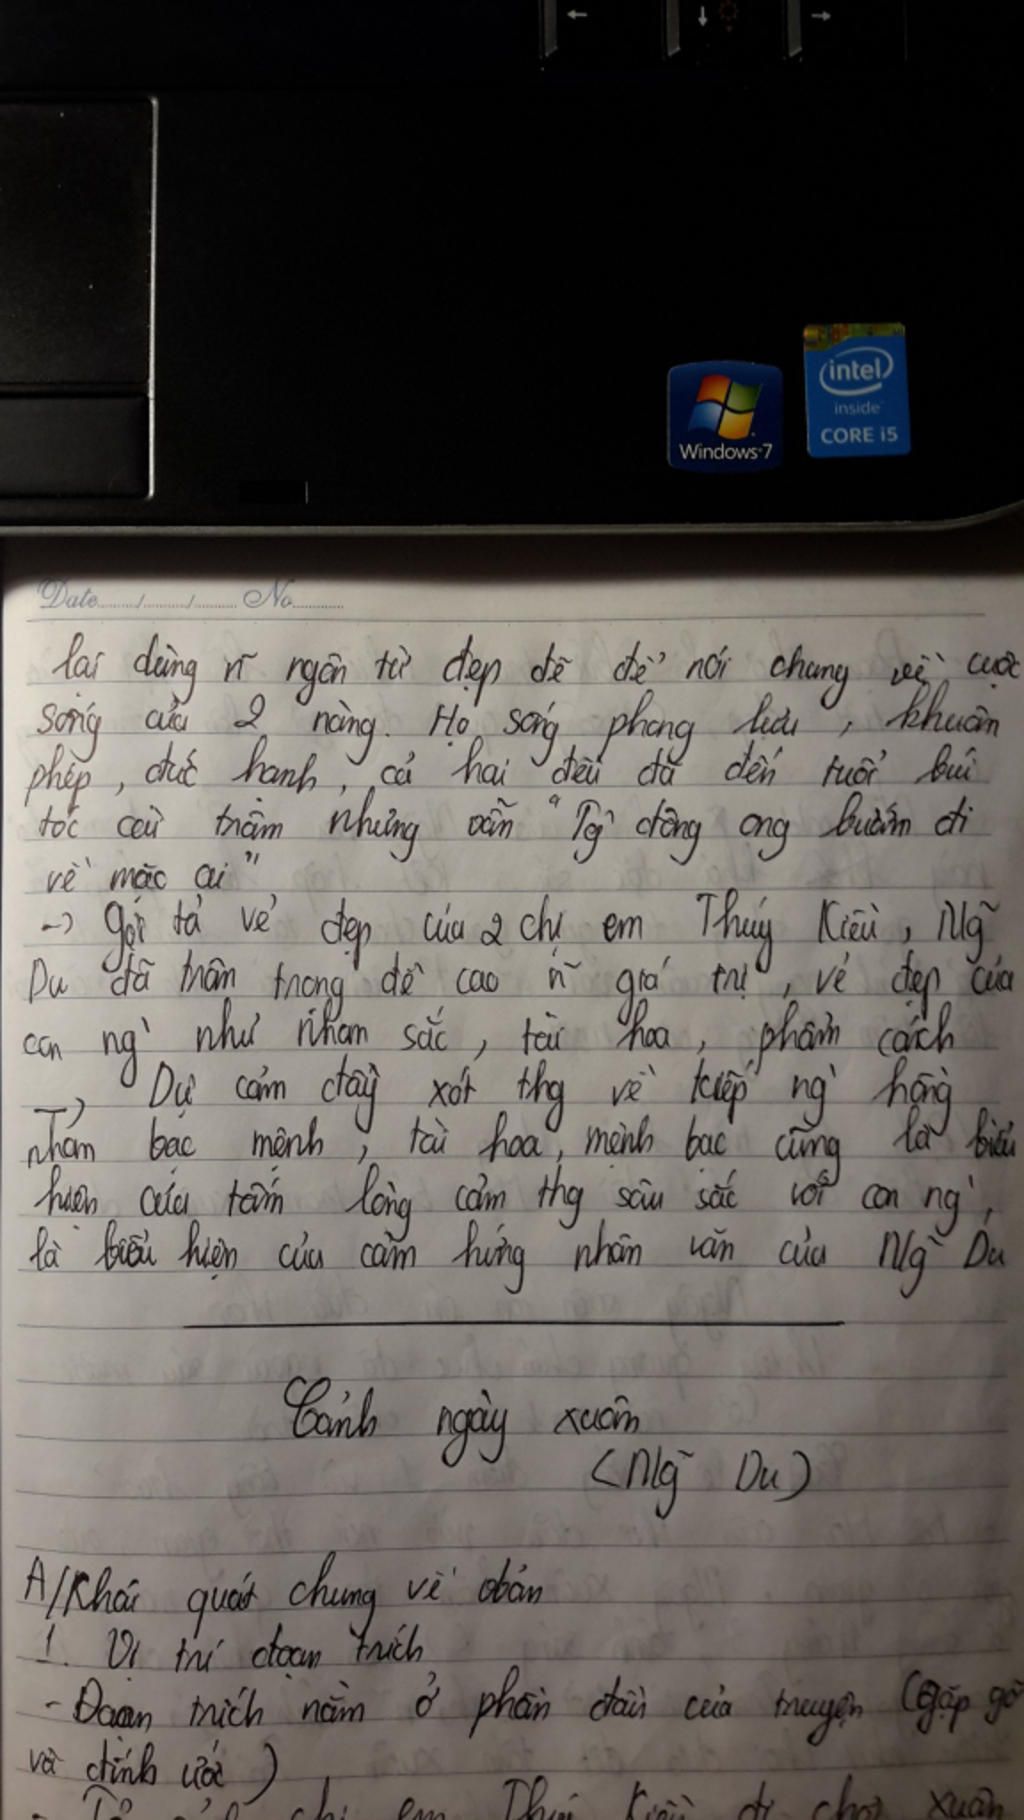 ←
↓
→
Windows 7
intel
inside
CORE i5
Date......./......./....... No..........
lai dùng ~ ngôn từ đẹp đẽ để nói chung về cuộc
sống của 2 nàng. Họ sống phong lưu, khuôn
phép, đức hạnh, cả hai đều đã đến tuổi búi
tóc cài trâm nhưng vẫn "Tg đông ong bướm đi
về mặc ai"
-> Gợi tả vẻ đẹp của 2 chị em Thúy Kiều, Ng~
Du đã trân trọng đề cao ~ giá trị, vẻ đẹp của
con ng` như nhan sắc, tài hoa, phẩm cách
-> Dự cảm đầy xót thg về kiếp ng` hồng
nhan bạc mệnh, tài hoa, mệnh bạc cũng là biểu
hiện của tấm lòng cảm thg sâu sắc với con ng`,
là biểu hiện của cảm hứng nhân văn của Ng~ Du
Cảnh ngày xuân
(Ng~ Du)
A/Khái quát chung về đoạn
1. Vị trí đoạn trích
- Đoạn trích nằm ở phần đầu của truyện (Gặp gỡ
và đính ước)
chị em Thúy Kiều đi chơi xuân